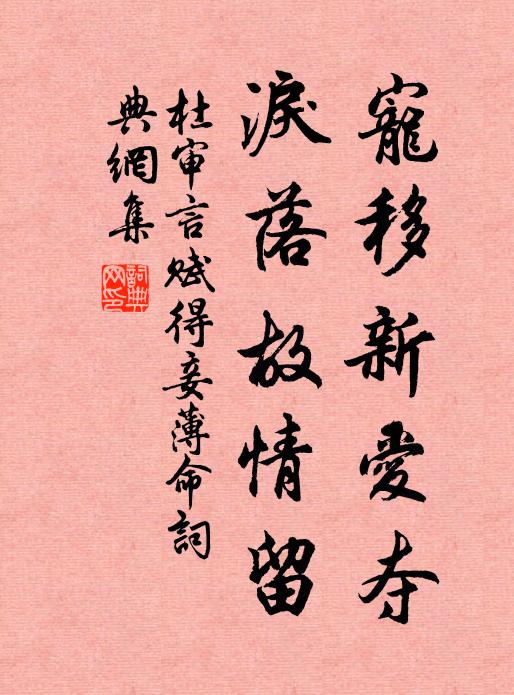 寵移新愛夺
淚落故情留
杜审言赋得妾薄命詞
典網集
詞典网印